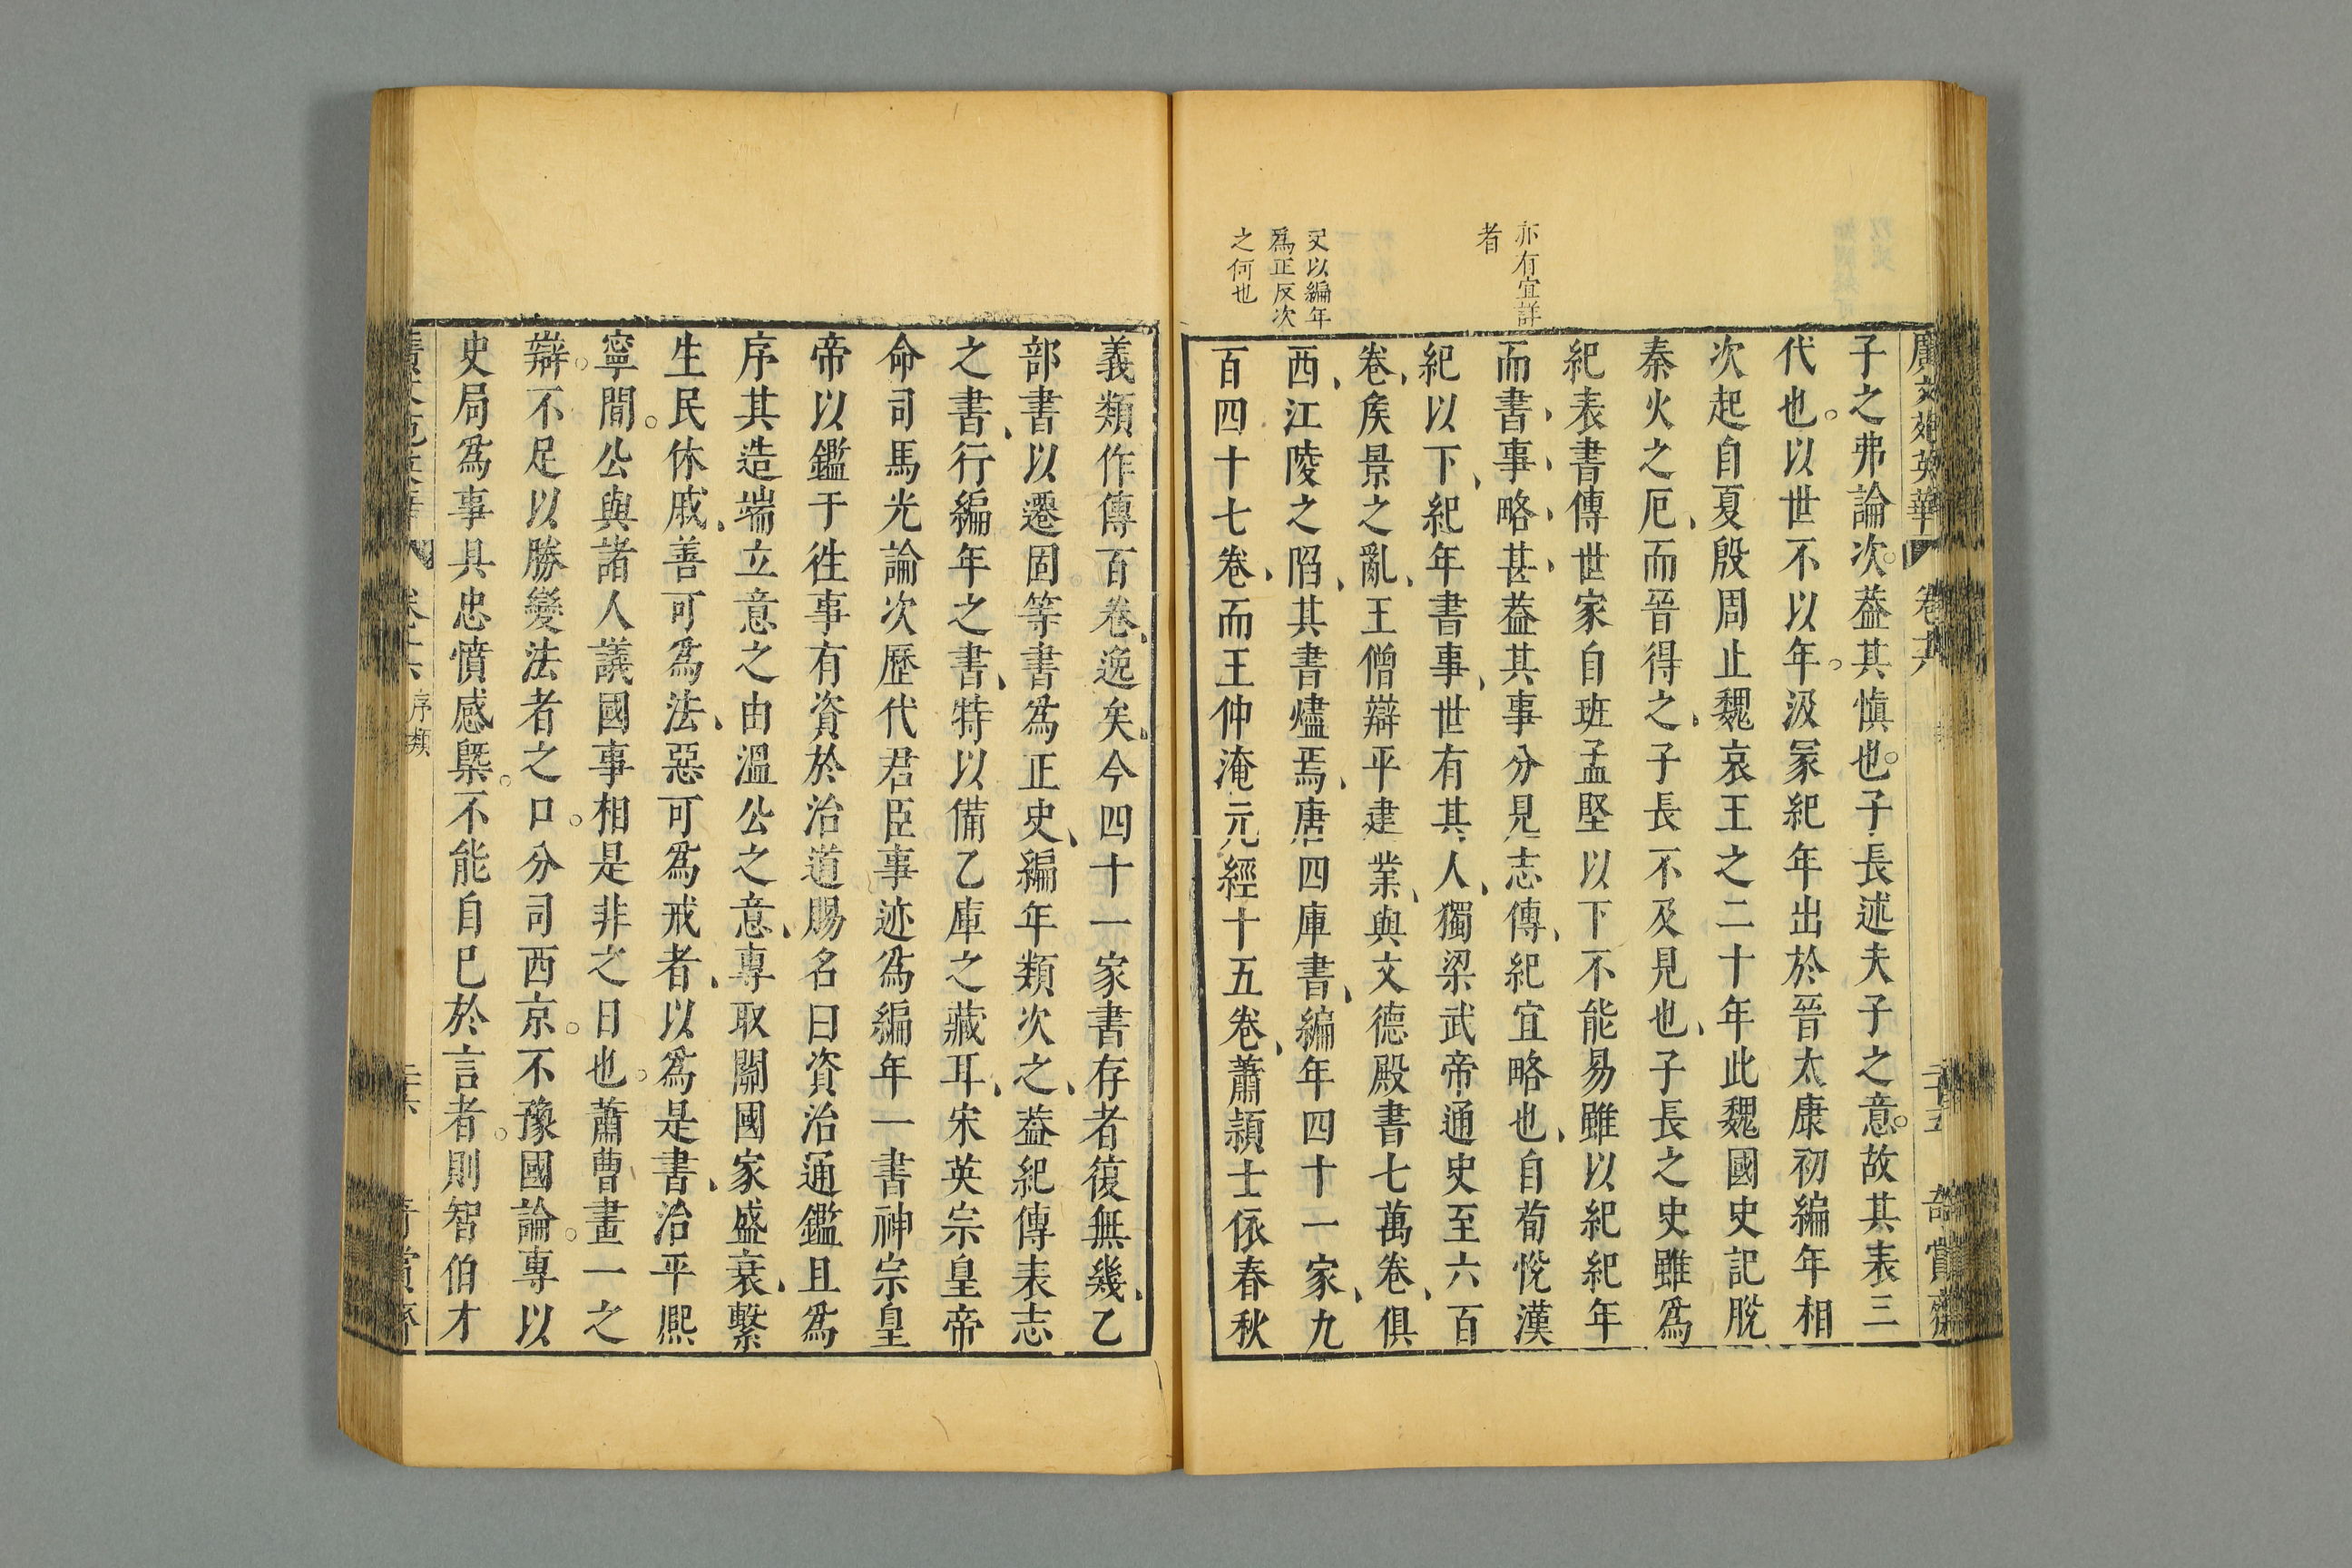 廣文苑英華 卷十六 二十五 奇賞齋
亦有宜詳
者
又以編年
爲正反次
之何也
子之弗論次葢其慎也子長述夫子之意故其表三
代也以世不以年汲冢紀年出於晉太康初編年相
次起自夏殷周止魏哀王之二十年此魏國史記脫
秦火之厄而晉得之子長不及見也子長之史雖爲
紀表書傳世家自班孟堅以下不能易雖以紀紀年
而書事略甚葢其事分見志傳紀宜略也自荀悅漢
紀以下紀年書事世有其人獨梁武帝通史至六百
卷矦景之亂王僧辯平建業與文德殿書七萬卷俱
西江陵之陷其書燼焉唐四庫書編年四十一家九
百四十七卷而王仲淹元經十五卷蕭潁士依春秋
義類作傳百卷逸矣今四十一家書存者復無幾乙
部書以遷固等書爲正史編年類次之葢紀傳表志
之書行編年之書特以備乙庫之藏耳宋英宗皇帝
命司馬光論次歷代君臣事迹爲編年一書神宗皇
帝以鑑于徃事有資於治道賜名曰資治通鑑且爲
序其造端立意之由溫公之意專取關國家盛衰繫
生民休戚善可爲法惡可爲戒者以爲是書治平熙
寧間公與諸人議國事相是非之日也蕭曹畫一之
辯不足以勝變法者之口分司西京不豫國論專以
史局爲事具忠憤感槩不能自已於言者則智伯才
序類